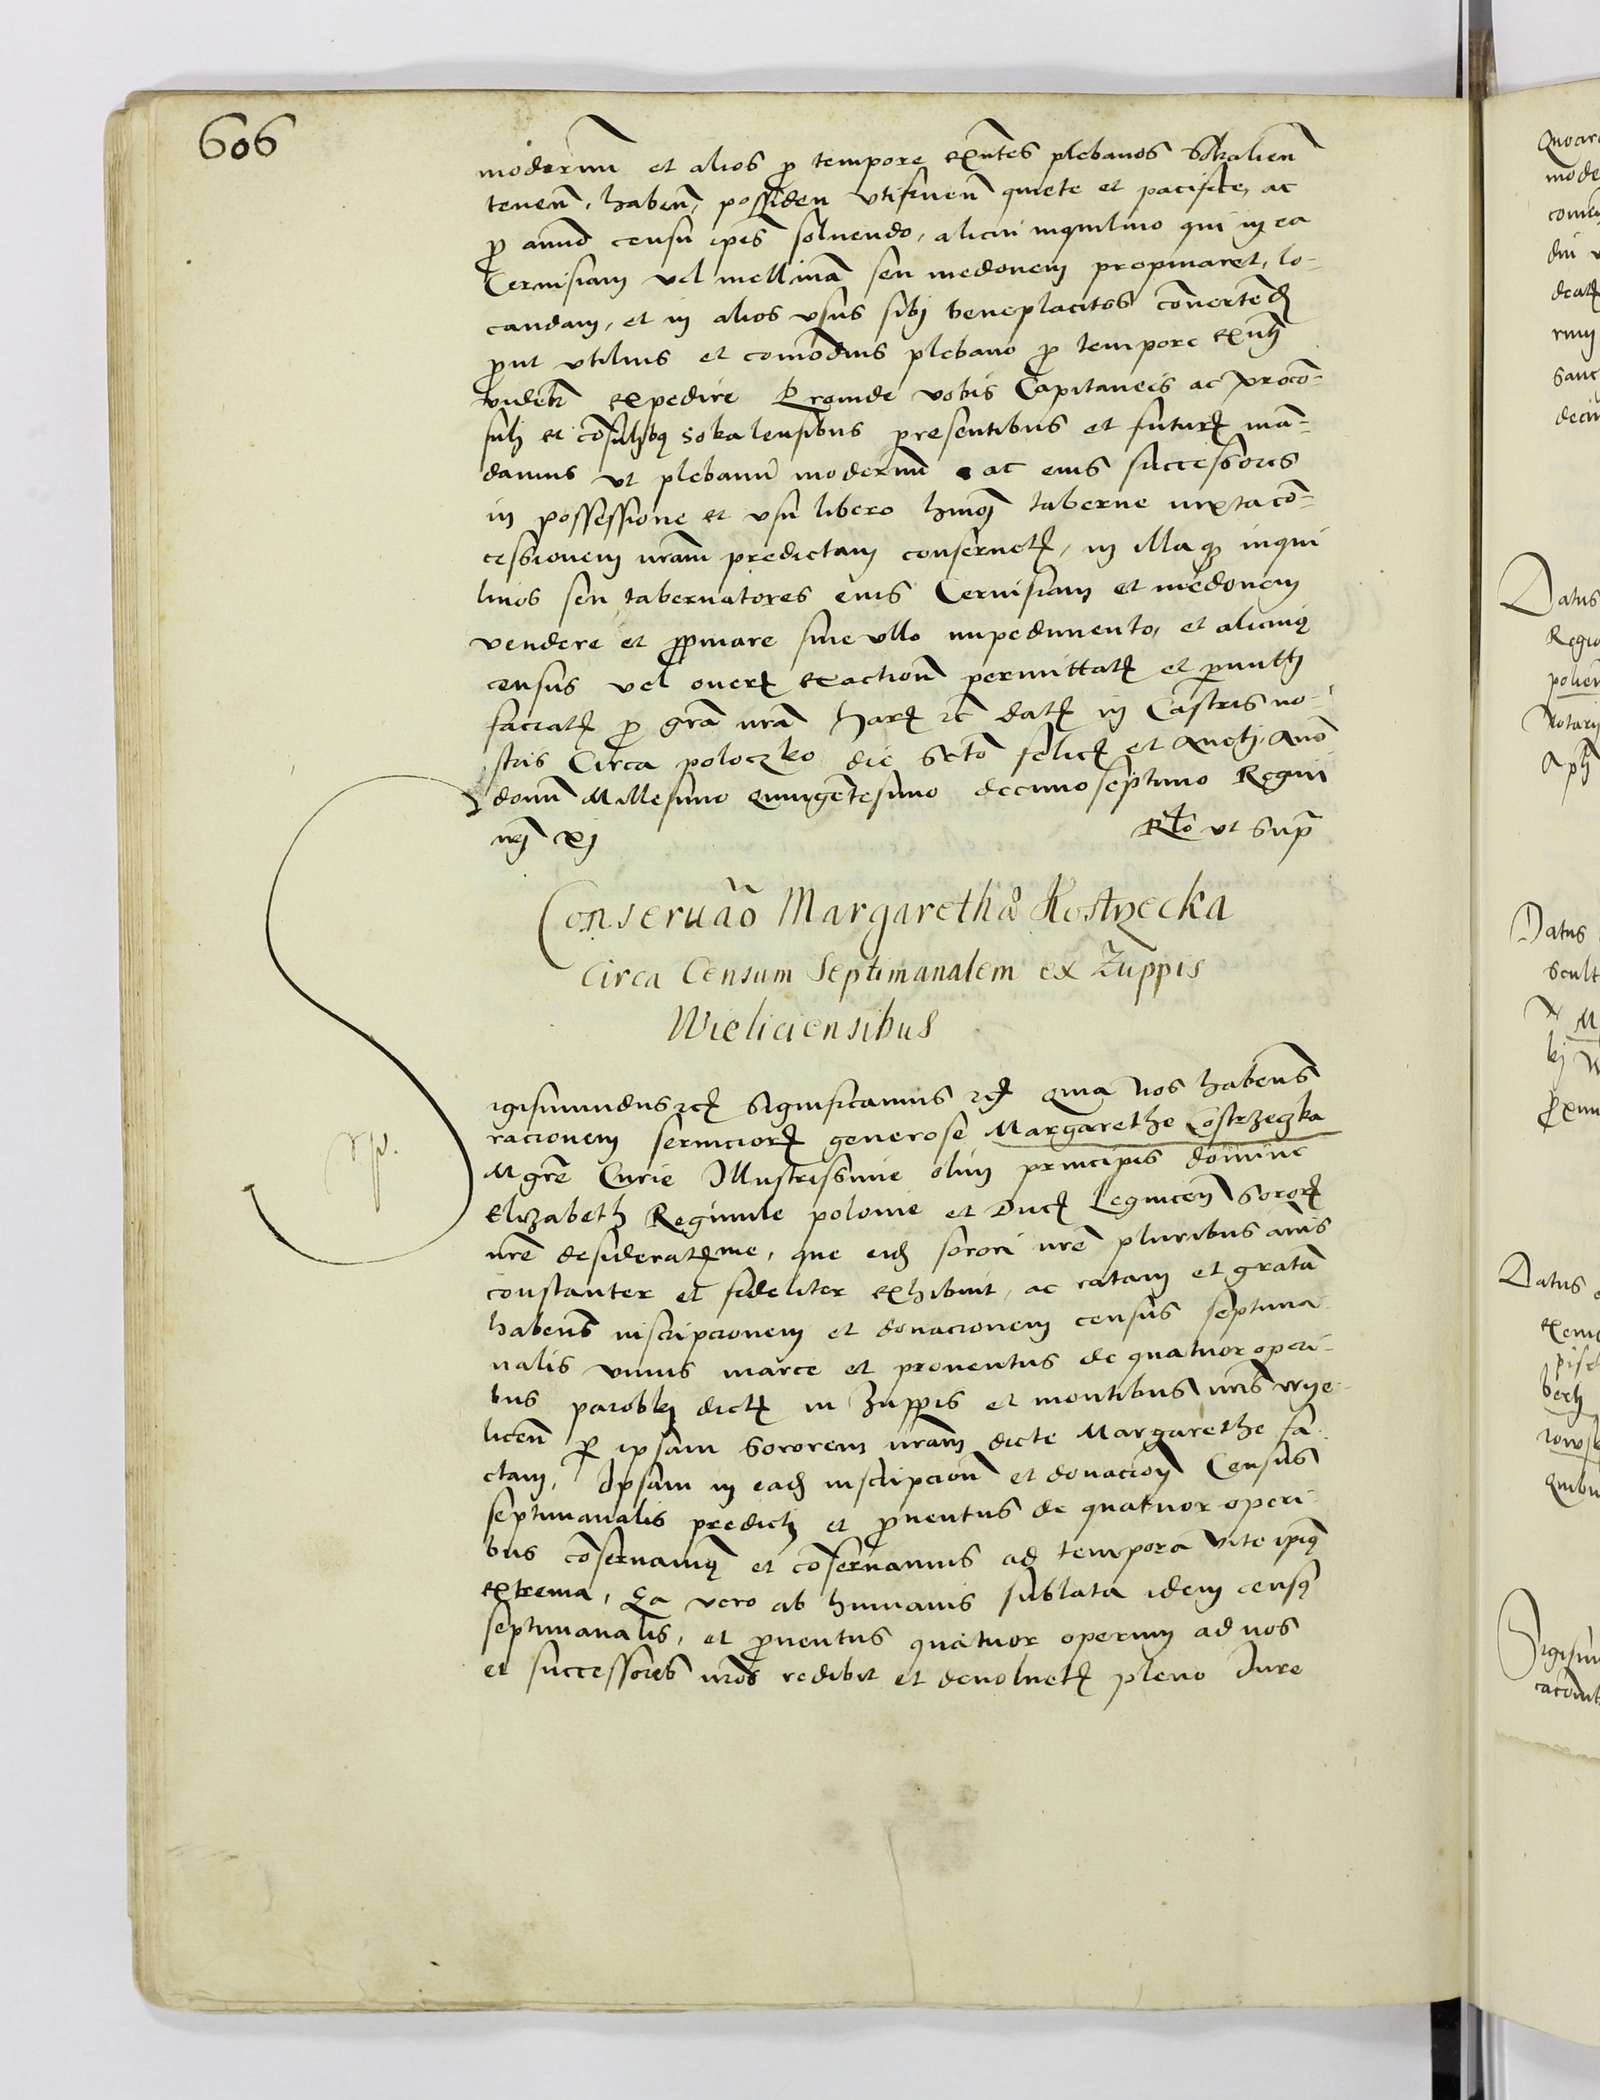 606
modernum et alios p tempore exntes plebanos Sokalien
tenen, habin, possiden utifruen quiete et pacifice, ac
p annuo censu ipis soluendo, alicui inquilino qui in ea
Ceruisiam vel mellinam seu medonem propinaret, lo-
candam, et in alios vsus sibi beneplacitos conuertend
put vtilius et comodius plebano p tempore exnti
videbit expedire Proinde vobis Capitaneis ac procon-
suli et consulibus Sokalensibus presentibus et futur man-
damus vt plebanum modernum ac eius successores
in possessione et vsu libero hmoi taberne iuxta con-
cessionem nram predictam conseruet, in illaq inqui
linos seu tabernatores eius Ceruisiam et medonem
vendere et ppinare sine vllo impedimento, et alicuius
census vel oner exaction permittat et pmitti
faciat p gra nra har rc dat in Castris no-
stris Circa poloczko die Scto felic et aucti Anno
domi Millesimo quingentesimo decimo septimo Regni
nri xj
Rlo vt supra
Conseruao Margaretha Kostrzecka
Circa Censum Septimanalem ex Zuppis
Wieliciensibus
igismundus rc Significamus rc quia Nos habentes
racionem seruicior generose Margarethe Costrzegka
Mgre Curie Illustrissime olim principis domine
Elizabeth Regimile polonie et Duc Legnicen Soror
nre desideratme, que eid sorori nre pluribus anis
constanter et fideliter exhibuit, ac ratam et gratam
habentes inscripcionem et donacionem census septima
nalis vnius marce et prouentus de quatuor operi-
bus parobki dict in Zuppis et montibus nris Wye-
licen p ipsam Sororem nram dicte Margarethe fa-
ctam, Ipsam in ead inscripcion et donacion Census
septimanalis predicti et puentus de quatuor operi
bus conseruamus et conseruamus ad tempora vite ipius
extrema, Ea vero ab humanis sublata idem census
septimanalis, et puentus quatuor operum ad nos
et successores nros redibit et deuoluet pleno Iure
Datus
Regio
polien
Notarij
Datus
Scult
Datus